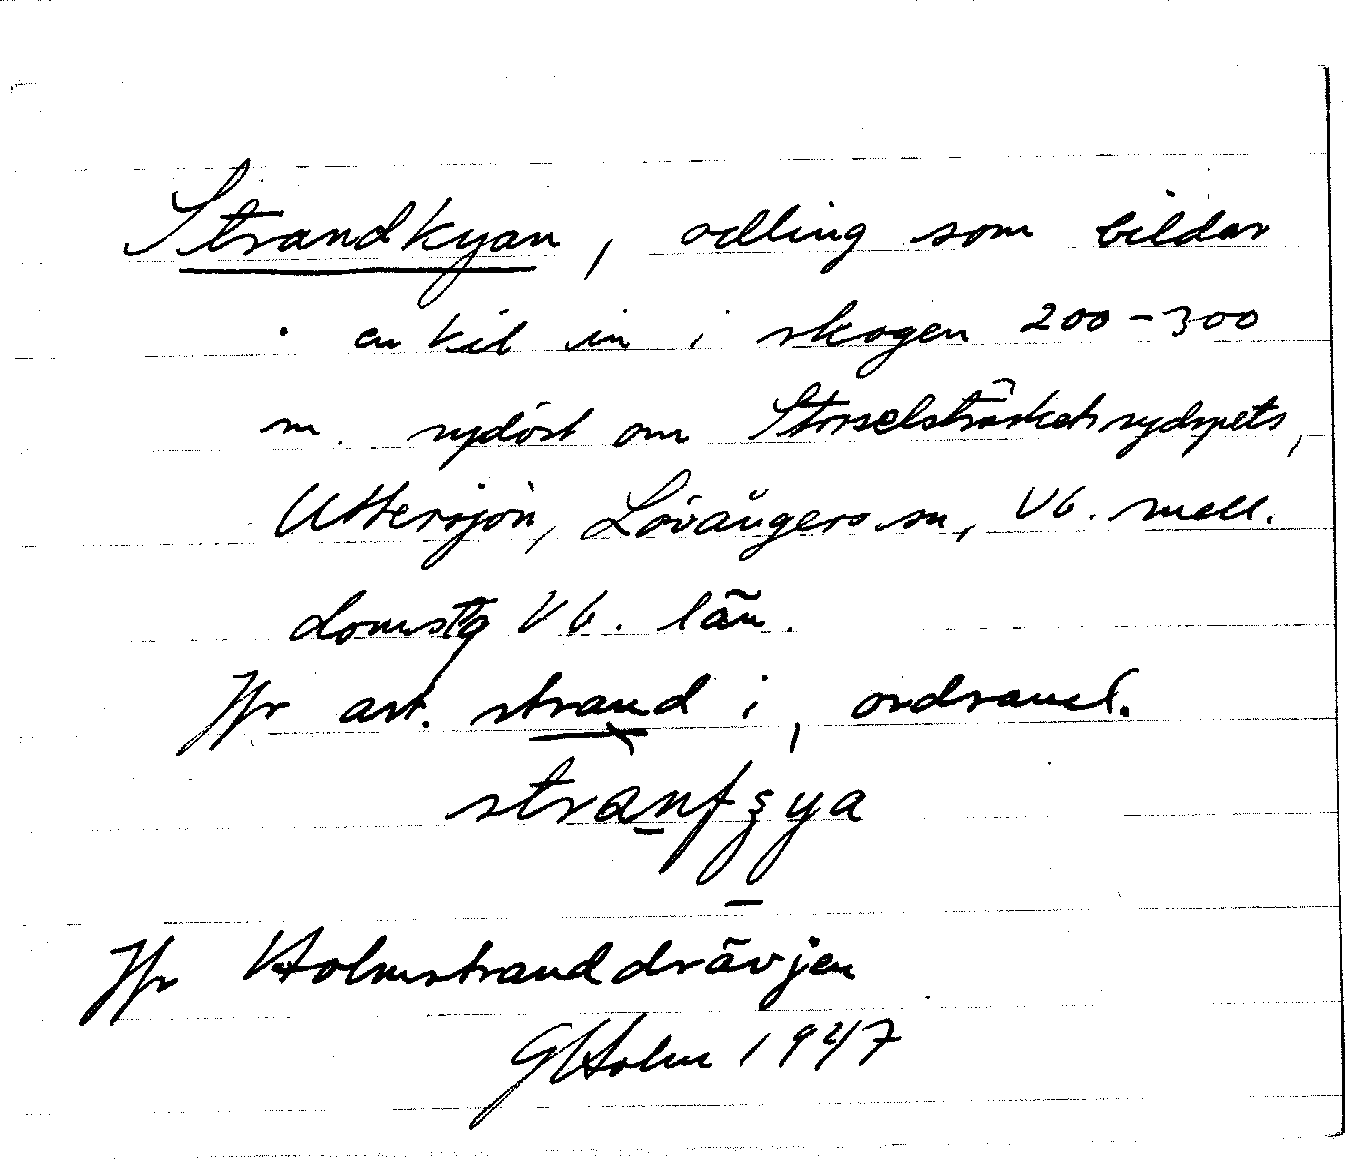 Strandkyan, odling som bildar
en kil in i skogen 200-300
m. sydöst om Storselsträskets sydspets,
Uttersjön, Lövångers sn, Vb. mell.
domsg Vb. län.
Jfr art. strand i, ordsaml.
Jfr Holmstranddrävjen
GHolm 1947